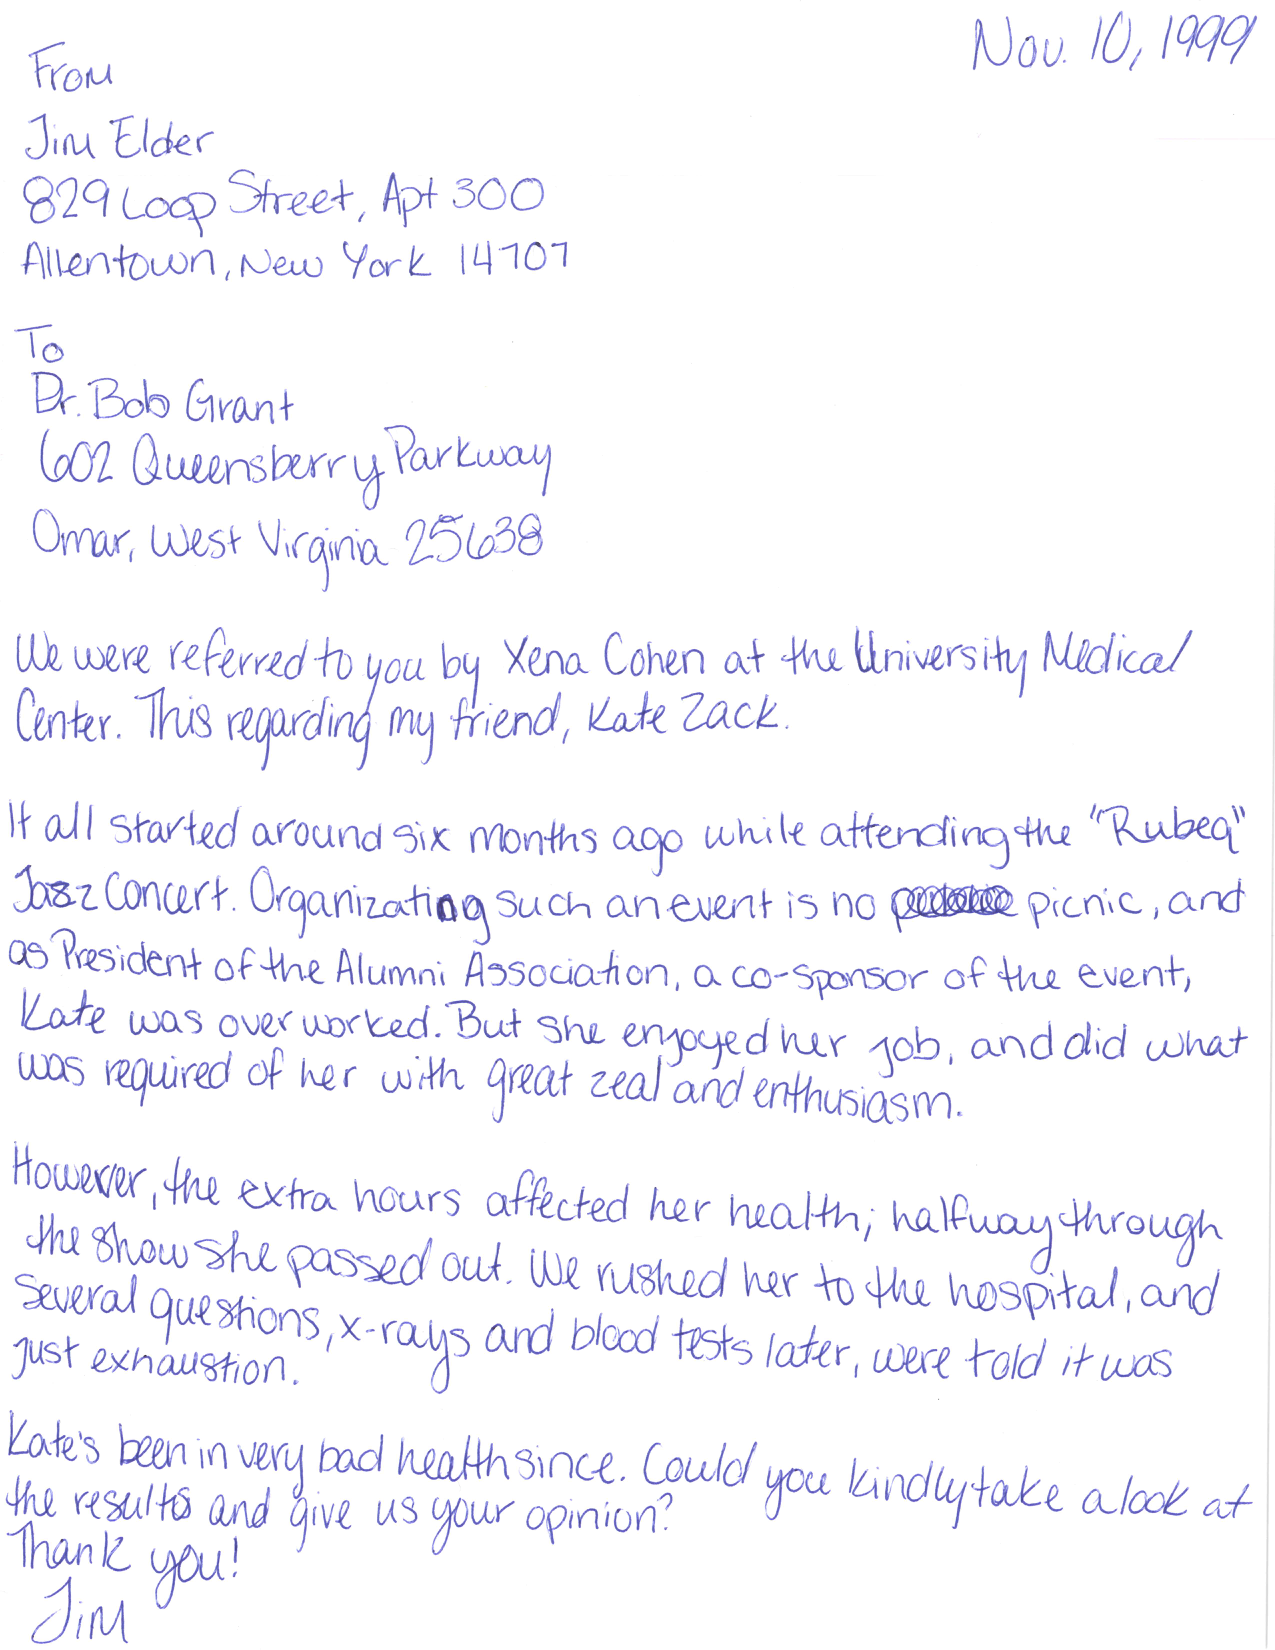 Nov. 10, 1999
From
Jim Elder
829 Loop Street, Apt 300
Allentown, New York 14707
To
Dr. Bob Grant
602 Queensberry Parkway
Omar, West Virginia 25638
We were referred to you by Xena Cohen at the University Medical
Center. This regarding my friend, Kate Zack.
It all started around six months ago while attending the "Rubeq"
Jazz Concert. Organizating such an event is no picnic, and
as President of the Alumni Association, a co-sponsor of the event,
Kate was overworked. But she enjoyed her job, and did what
was required of her with great zeal and enthusiasm.
However, the extra hours affected her health; halfway through
the show she passed out. We rushed her to the hospital, and
several questions, x-rays and blood tests later, were told it was
just exhaustion.
Kate's been in very bad health since. Could you kindly take a look at
the results and give us your opinion?
Thank you!
Jim